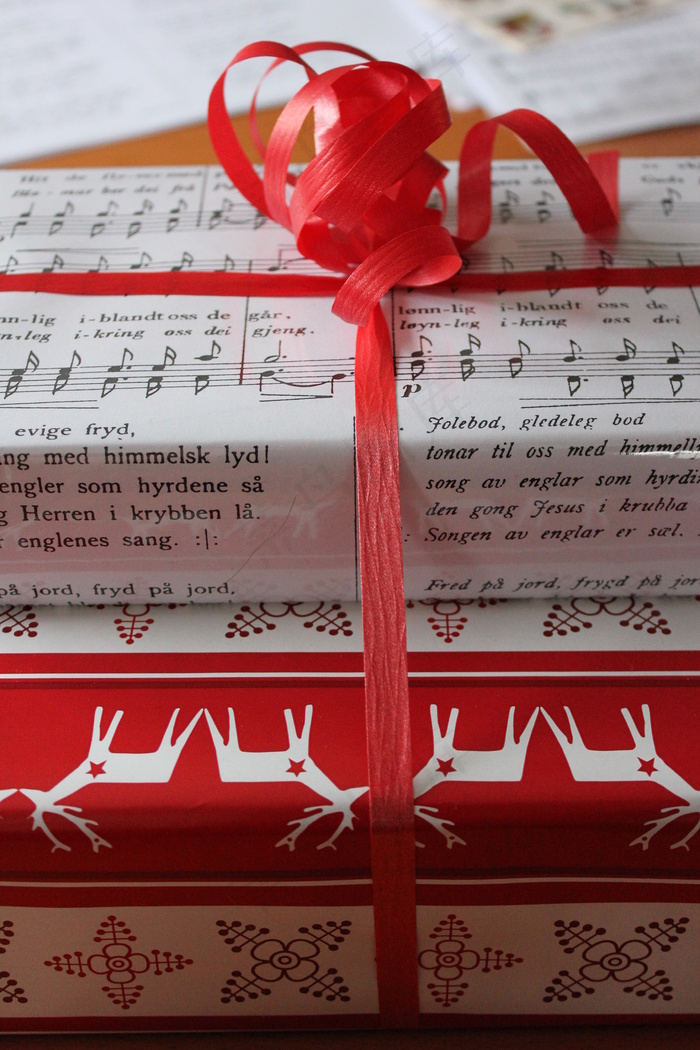 nn-lig i-blandt oss de går. lønn-lig i-blandt oss de
n-leg i-kring oss dei gjeng. løyn-leg i-kring oss dei
p
evige fryd, Jolebod, gledeleg bod
ng med himmelsk lyd! tonar til oss med himmelly
engler som hyrdene så song av englar som hyrdi
g Herren i krybben lå. den gong Jesus i krubba
r englenes sang. :|: Songen av englar er sæl.
på jord, fryd på jord, Fred på jord, frygd på jor